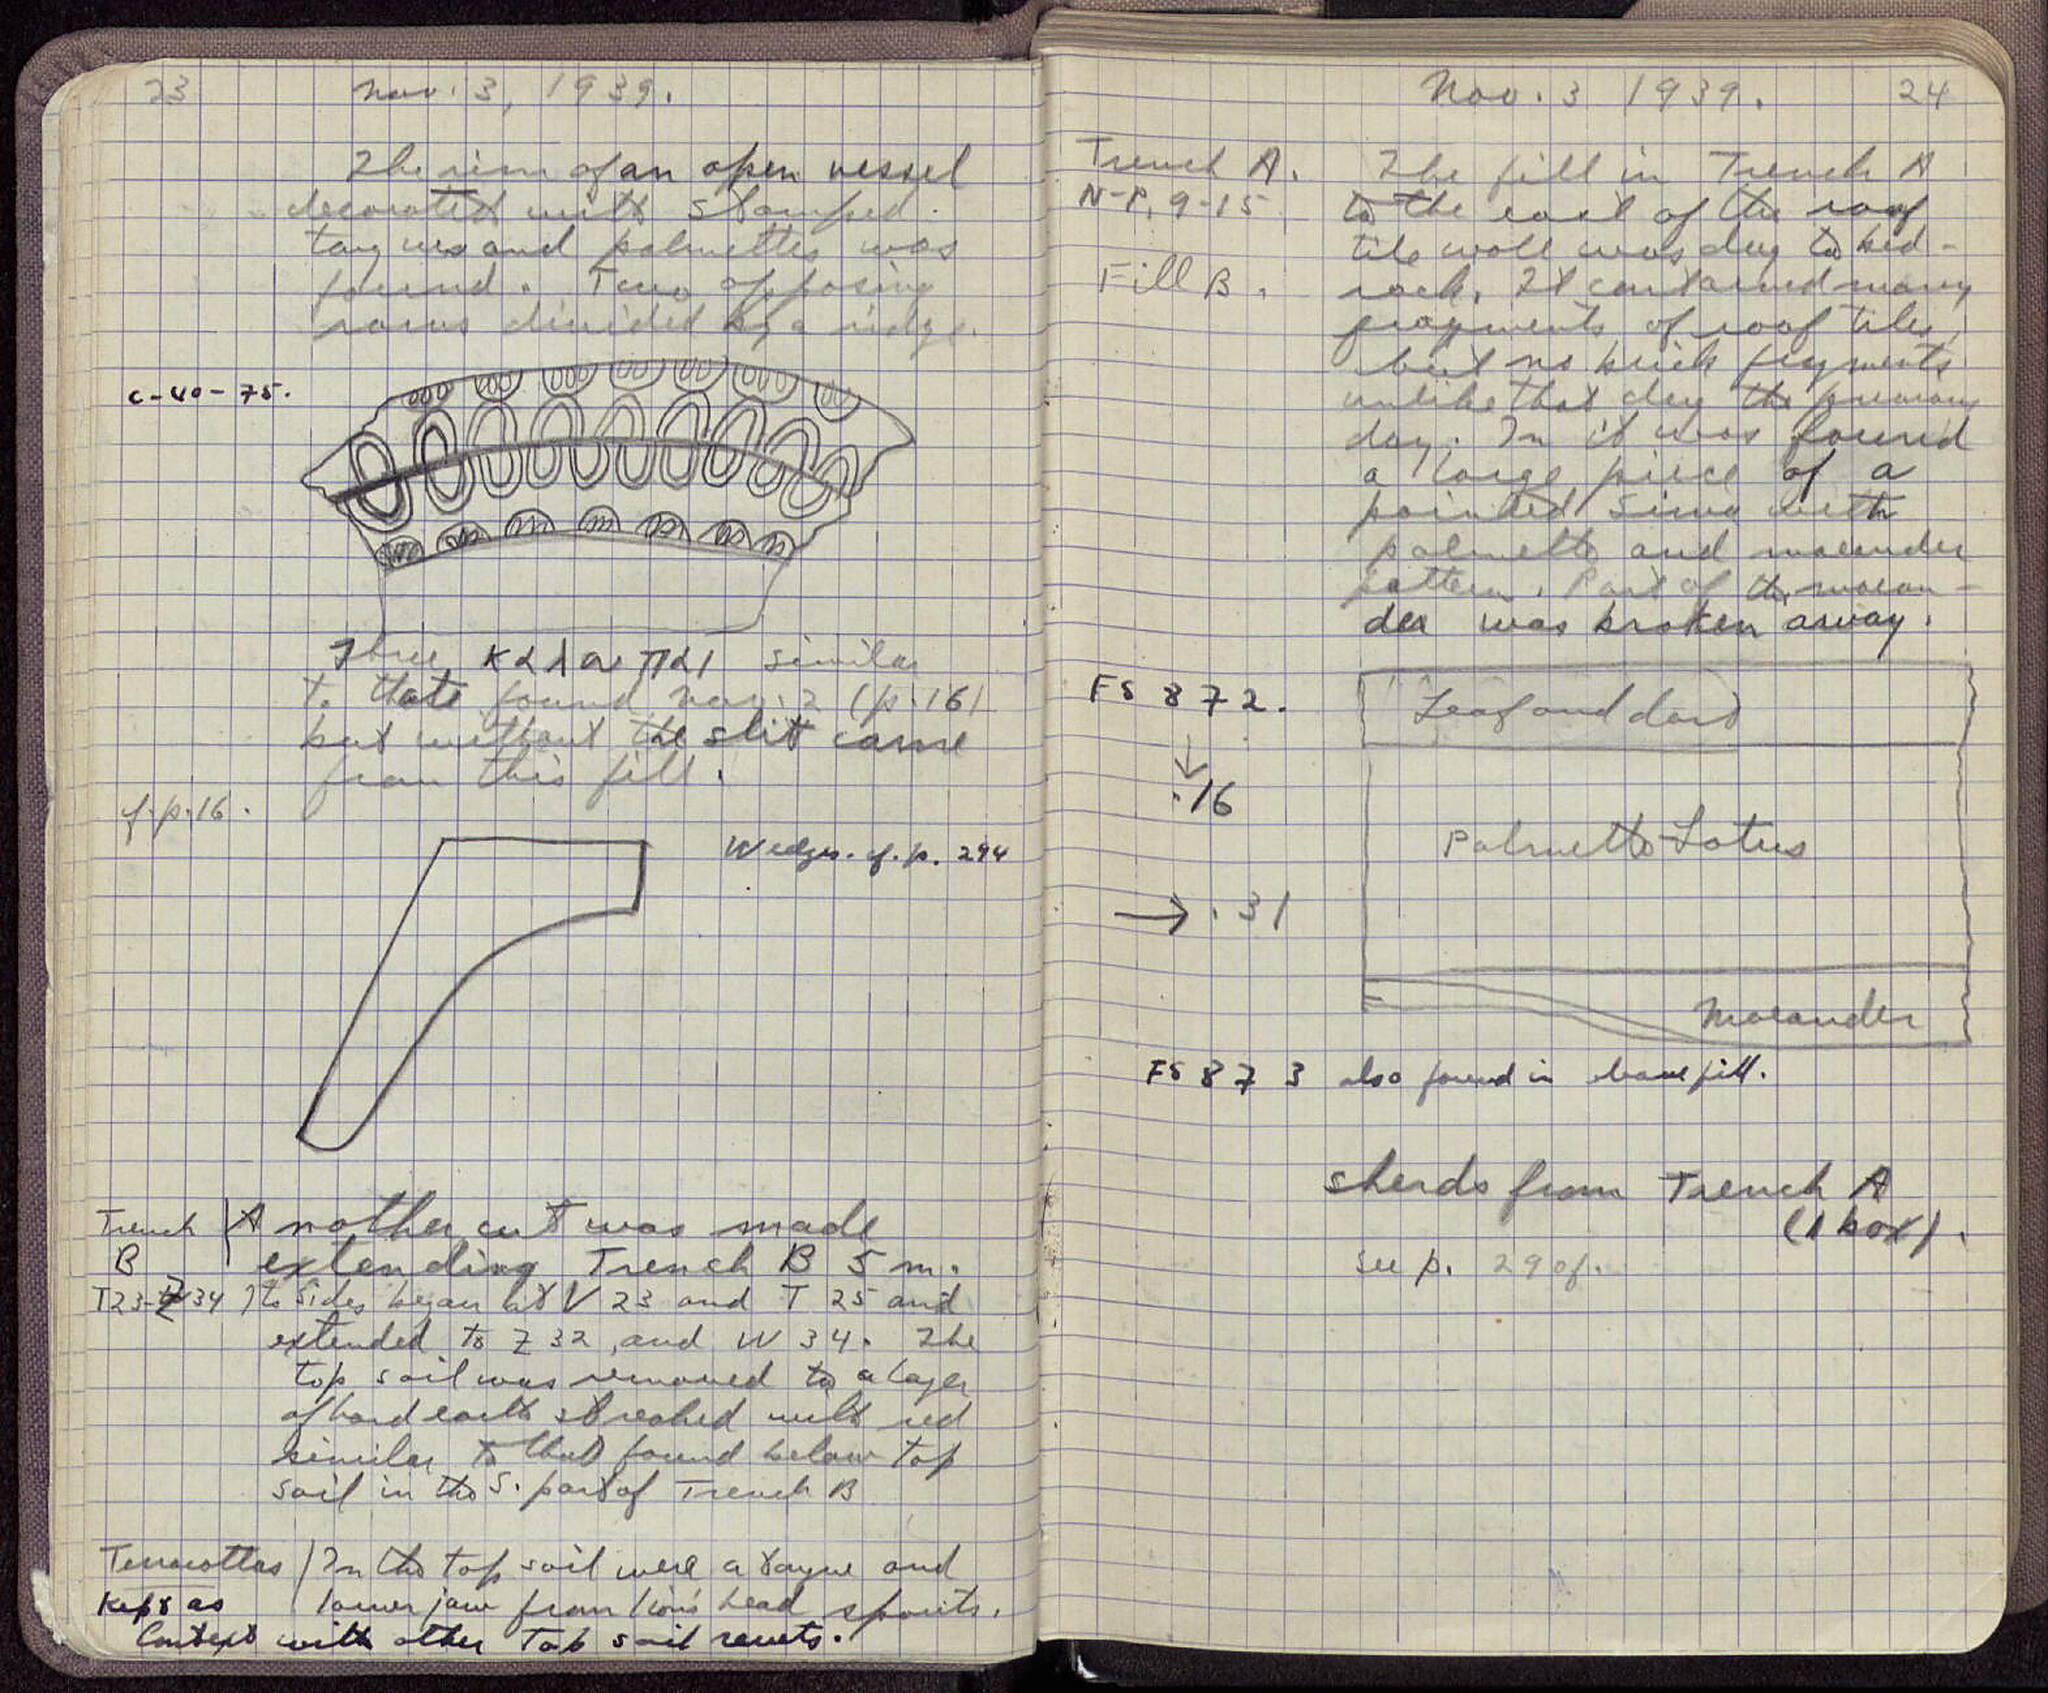 23
Nov. 3, 1939.
The rim of an open vessel
decorated with stamped
tongues and palmettes was
found. Two opposing
rows divided by a ridge.
C-40-75.
Three καλυπται similar
to that found Nov. 2 (p. 16)
but without the slit came
from this fill.
cf. p. 16.
Wedges. cf. p. 294
Trench
B
T23-Z34
Another cut was made
extending Trench B 5 m.
Its sides began at V 23 and T 25 and
extended to Z 32, and W 34. The
top soil was removed to a layer
of hard earth streaked with red
similar to that found below top
soil in the S. part of Trench B
Terracottas
Kept as
In the top soil were a tongue and
lower jaw from lion's head spouts.
Context with other Top soil revets.
Nov. 3 1939.
24
Trench A.
N-P, 9-15
Fill B.
The fill in Trench A
to the east of the roof
tile wall was dug to bed-
rock. It contained many
fragments of roof tiles,
but no brick fragments
unlike that dug the previous
day. In it was found
a large piece of a
painted sima with
palmette and maeander
pattern. Part of the maean-
der was broken away.
FS 872.
↓
.16
→ .31
Leaf and dart
Palmette-Lotus
Maeander
FS 873 also found in above fill.
sherds from Trench A
(1 box).
see p. 290f.